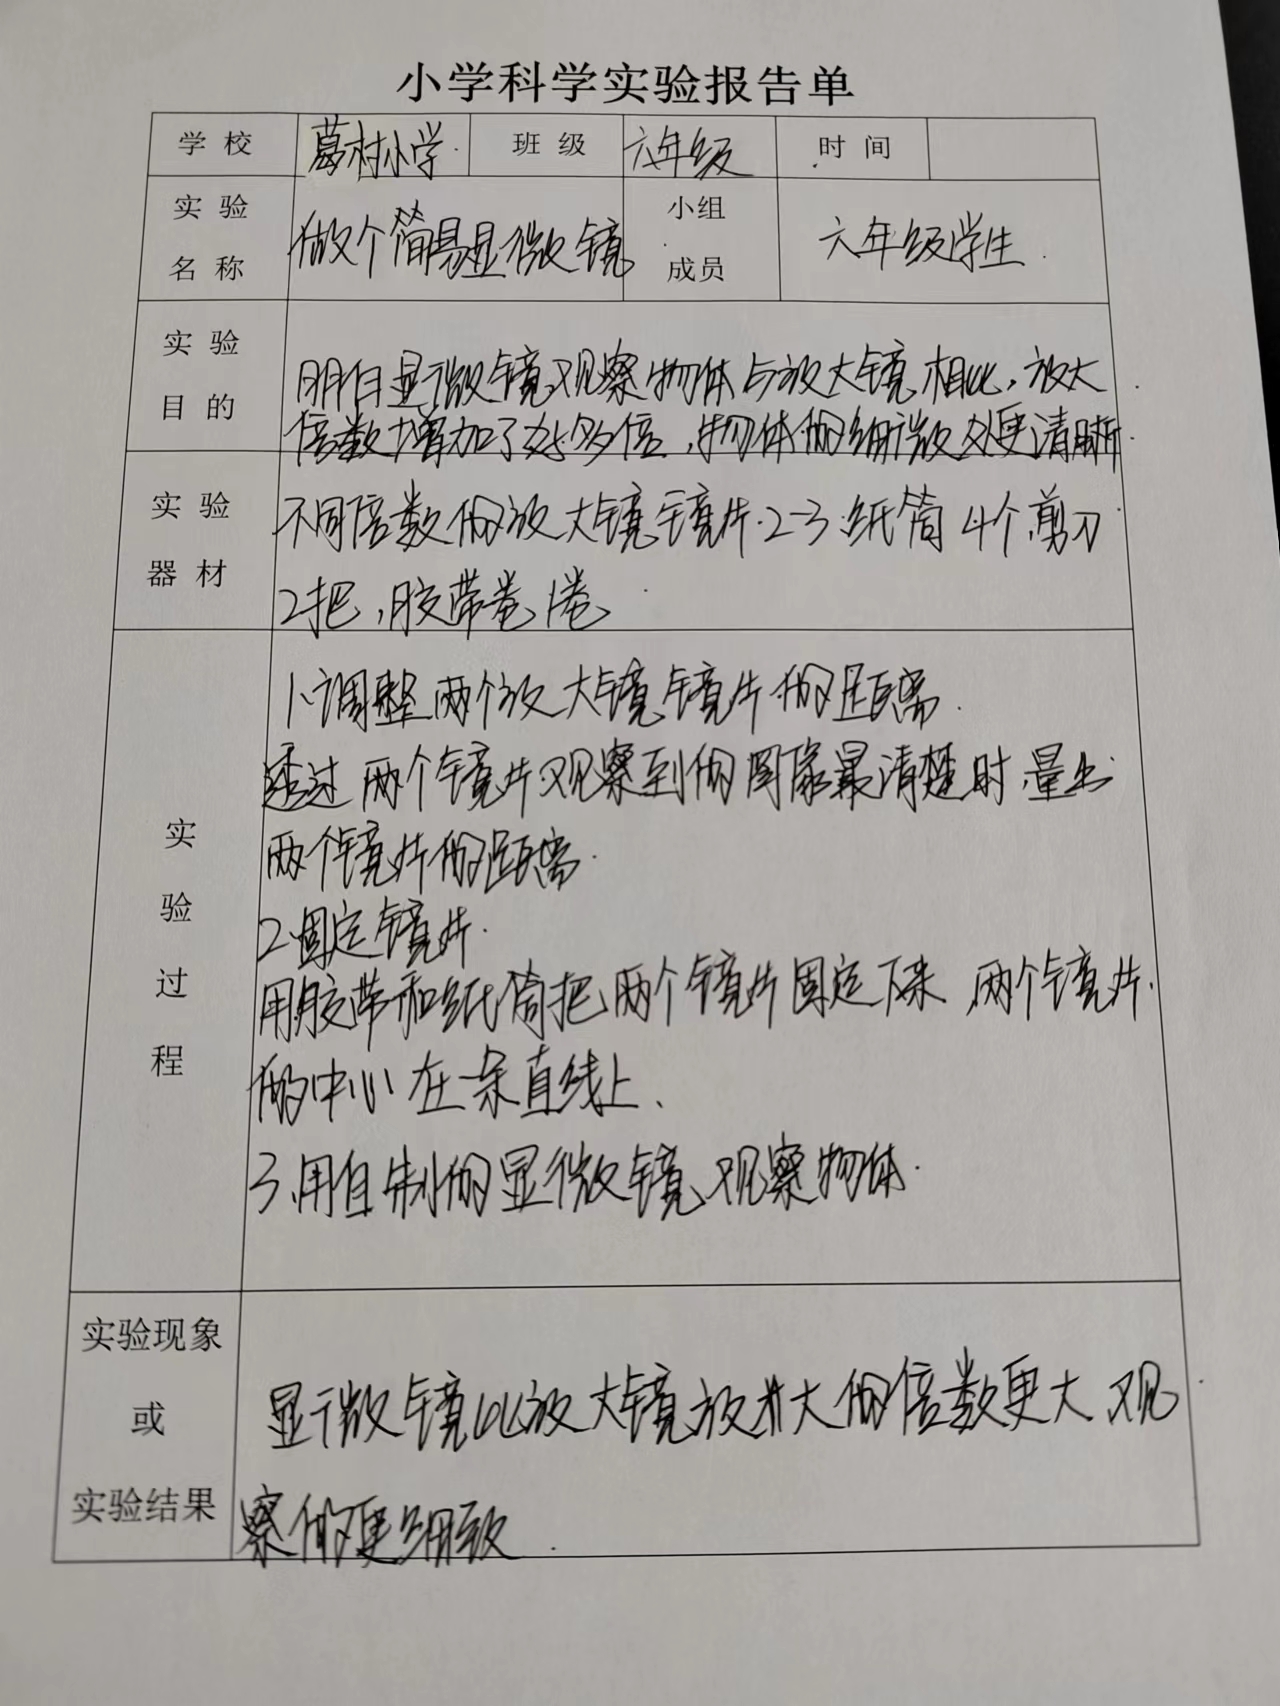 小学科学实验报告单
学校 葛村小学 班级 六年级 时间
实验 名称 做个简易显微镜 小组 成员 六年级学生
实验 目的
明白显微镜观察物体与放大镜相比，放大
倍数增加了好多倍，物体的细微处更清晰
实验 器材
不同倍数的放大镜镜片2-3.纸筒4个,剪刀
2把，胶带卷1卷
实验过程
1.调整两个放大镜镜片的距离.
透过两个镜片观察到的图像最清楚时,量出
两个镜片的距离.
2.固定镜片.
用胶带和纸筒把两个镜片固定下来，两个镜片
的中心在一条直线上、
3、用自制的显微镜观察物体.
实验现象 或 实验结果
显微镜比放大镜放大的倍数更大 观
察的更细致.